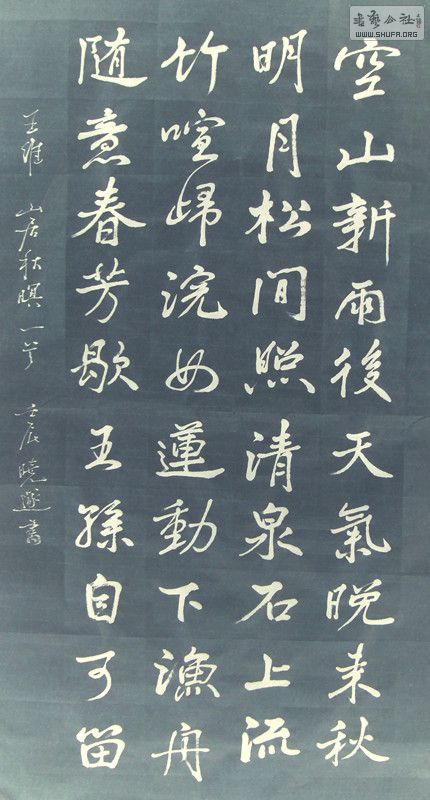 書藝公社
WWW.SHUFA.ORG
空山新雨後天氣晚来秋
明月松間照清泉石上流
竹喧歸浣女蓮動下漁舟
随意春芳歇王孫自可留
王維 山居秋暝一首 壬辰曉書